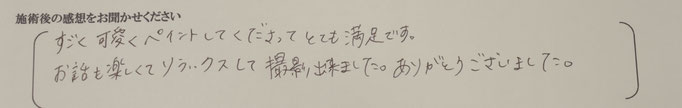 施術後の感想をお聞かせください
すごく可愛くペイントしてくださってとても満足です。
お話も楽しくてリラックスして撮影出来ました。ありがとうございました。